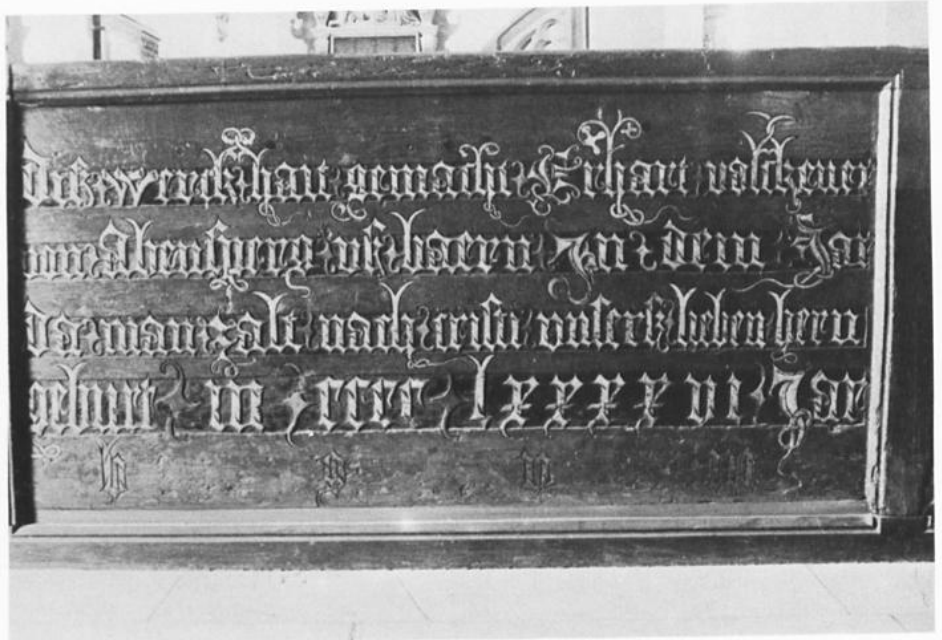 Diß · werck · haut · gemacht · Erhart valckener
von Abensperg · uß · baern In · dem Jar
Da · man · zalt nach · cristi unsers · lieben hern
geburt · m · cccc · lxxxxvi · Jar
h g m